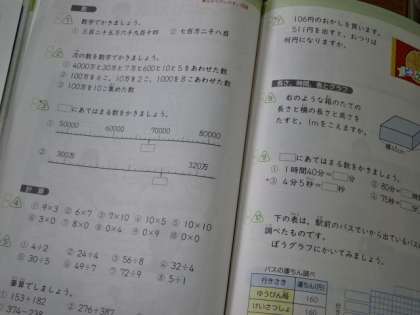 数字でかきましょう。
① 三百二十五万六千九百四十 ② 七百万二千八百
次の数を数字でかきましょう。
① 4000万と30万と7万と600と10と5をあわせた数
② 100万を2こ、10万を2こ、1000を8こあわせた数
③ 100万を10こ集めた数
□にあてはまる数をかきましょう。
① 60000 70000 80000
② 300万 320万
計算
① 9×3 ② 6×7 ③ 7×10 ④ 10×5 ⑤ 10×10
⑥ 3×0 ⑦ 8×0 ⑧ 0×4 ⑨ 0×9 ⑩ 0×0
① 4÷2 ② 24÷4 ③ 56÷8 ④ 32÷4
⑤ 30÷5 ⑥ 49÷7 ⑦ 72÷9 ⑧ 5÷1
筆算でしましょう。
① 153+182 ② 276+387
106円のおかしを買います。
511円を出すと、おつりは
何円になりますか。
長さ、時間、表とグラフ
右のような箱のたての
長さと横の長さと高さを
たすと、1mをこえますか。
□にあてはまる数をかきましょう。
① 1時間40分=□分 ② 80分=
③ 4分5秒=□秒 ④ 75秒=
下の表は、駅前のバスていから出ているバス
調べたものです。
ぼうグラフにかいてみましょう。
バスの運ちん調べ
行きさき 運ちん(円)
ゆうびん局 160
けいさつしょ 160